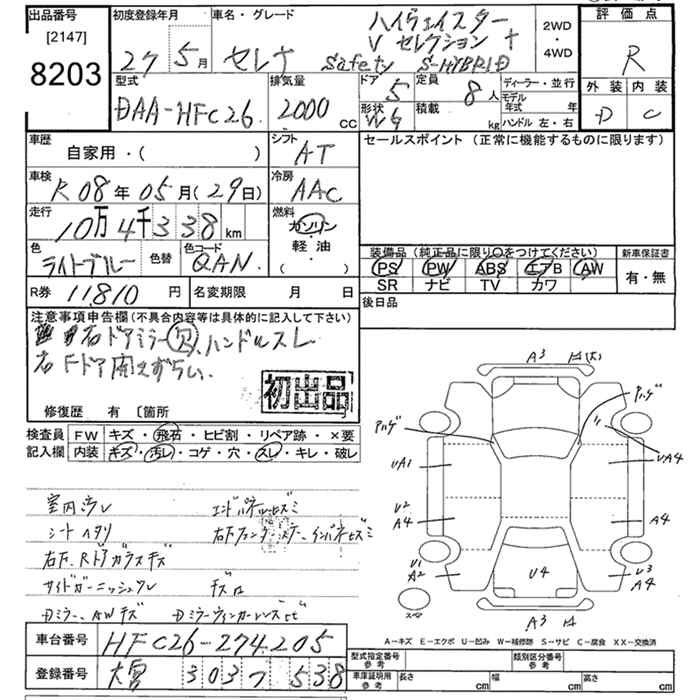 出品番号
[2147]
8203
初度登録年月
27 5月
車名・グレード
セレナ
ハイウェイスター
V セレクション+
Safety S-HYBRID
2WD
・
4WD
評価点
R
外装 内装
D C
型式
DAA-HFC26
排気量
2000 CC
ドア 5
形状
定員 8人
積載 kg
ディーラー・並行
モデル年式 年
ハンドル 左・右
車歴
自家用・( )
シフト
AT
セールスポイント (正常に機能するものに限ります)
車検
R 08年 05月 (29日)
冷房
AAC
走行
10万4千338 km
燃料
ガソリン
軽油
・( )
色
ライトブルー
色替
色コード
QAN
装備品 (純正品に限り○をつけてください)
PS PW ABS エアB AW
SR ナビ TV カワ
新車保証書
有・無
R券 11,810 円
名変期限 月 日
後日品
注意事項申告欄(不具合内容等は具体的に記入して下さい)
右ドアミラー欠、ハンドルスレ
右Fドア開えずらい.
初出品
修復歴 有 〔箇所
検査員
記入欄
FW キズ・飛石・ヒビ割・リペア跡・×要
内装 キズ・汚レ・コゲ・穴・スレ・キレ・破レ
室内汚レ
シートヘタリ
右F、Rドアガラスキズ
サイドガーニッシュワレ
Dミラー、AWキズ
エンドパネルヒズミ
キズ口
Dミラーウィンカーレンズヒビ
A3
ハゲ
ハゲ
UA1
UA4
U2
A4
A4
U1
A2
U4
U3
A4
スペア
A3
A-キズ E-エクボ U-凹み W-補修跡 S-サビ C-腐食 XX-交換済
車台番号 HFC26-274205
登録番号 大宮 303 538
型式指定番号
参考
類別区分番号
参考
車庫証明用
参考
長さ cm
幅 cm
高さ cm